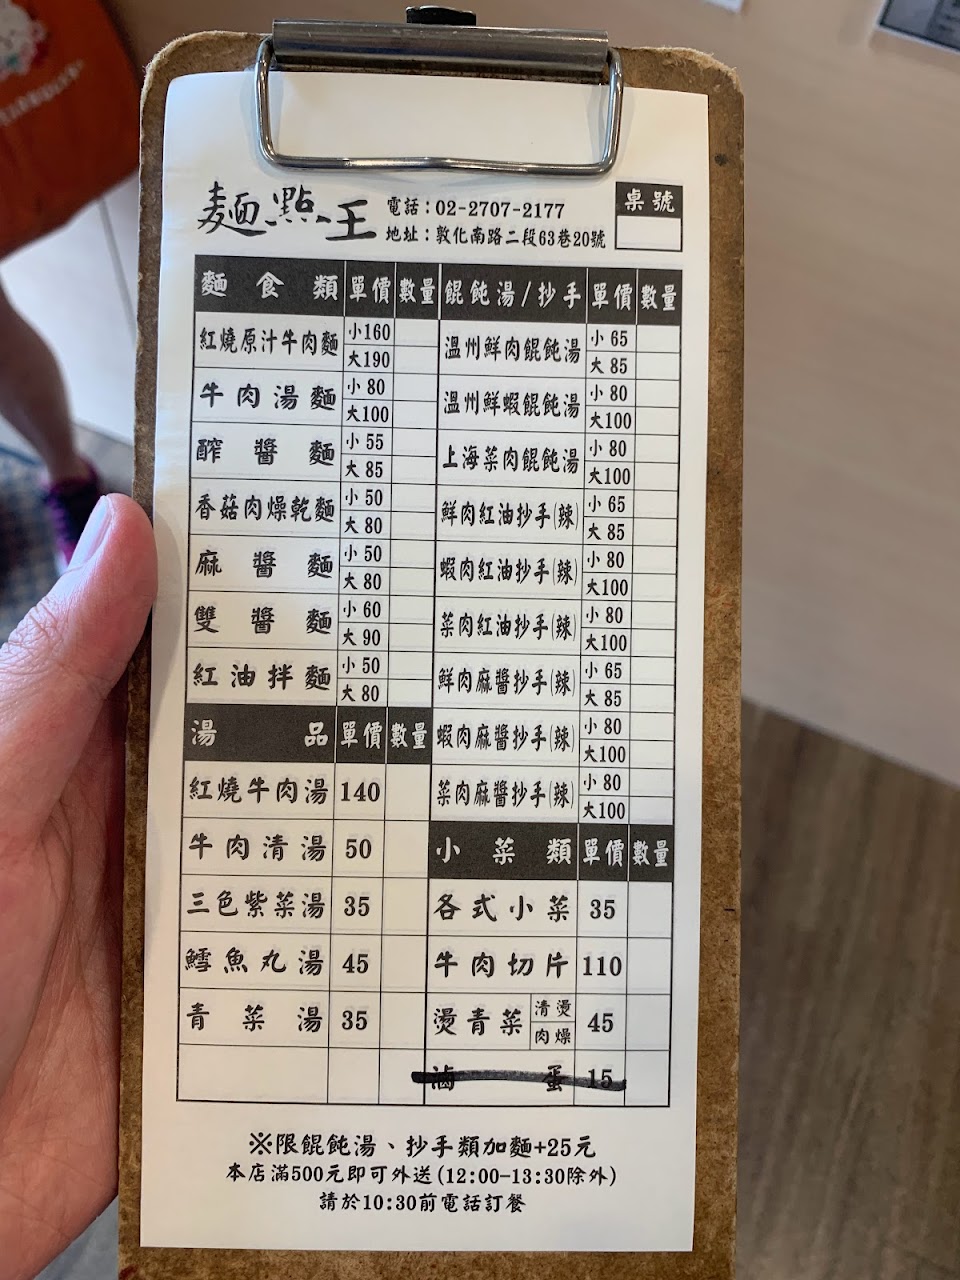 麵點王
電話：02-2707-2177
地址：敦化南路二段63巷20號
桌號
麵食類 單價 數量
紅燒原汁牛肉麵 小160 大190
牛肉湯麵 小80 大100
醡醬麵 小55 大85
香菇肉燥乾麵 小50 大80
麻醬麵 小50 大80
雙醬麵 小60 大90
紅油拌麵 小50 大80
湯品 單價 數量
紅燒牛肉湯 140
牛肉清湯 50
三色紫菜湯 35
鱈魚丸湯 45
青菜湯 35
餛飩湯/抄手 單價 數量
溫州鮮肉餛飩湯 小65 大85
溫州鮮蝦餛飩湯 小80 大100
上海菜肉餛飩湯 小80 大100
鮮肉紅油抄手(辣) 小65 大85
蝦肉紅油抄手(辣) 小80 大100
菜肉紅油抄手(辣) 小80 大100
鮮肉麻醬抄手(辣) 小65 大85
蝦肉麻醬抄手(辣) 小80 大100
菜肉麻醬抄手(辣) 小80 大100
小菜類 單價 數量
各式小菜 35
牛肉切片 110
燙青菜 清燙 肉燥 45
滷蛋 15
※限餛飩湯、抄手類加麵+25元
本店滿500元即可外送(12:00-13:30除外)
請於10:30前電話訂餐